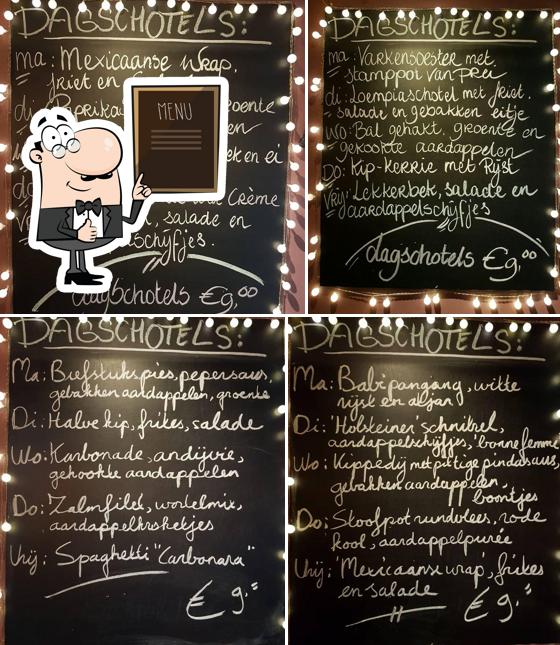 DAGSCHOTELS:
ma: Mexicaanse Wrap,
friet en
di: Paprika groente
en
ek en ei
Crème
salade en
schijfjes.
dagschotels €9,00
MENU
DAGSCHOTELS:
ma: Varkensoester met
stamppot van Prei
di: Loempiaschotel met friet,
salade en gebakken eitje
wo: Bal gehakt, groente en
gekookte aardappelen
Do: Kip-Kerrie met Rijst
Vrij: Lekkerbek, salade en
aardappelschijfjes
dagschotels €9,00
DAGSCHOTELS:
Ma: Biefstukspies, pepersaus,
gebakken aardappelen, groente
Di: Halve kip, frites, salade
Wo: Karbonade, andijvie,
gekookte aardappelen
Do: Zalmfilet, wortelmix,
aardappelkroketjes
Vrij: Spaghetti "Carbonara"
€ 9,=
DAGSCHOTELS:
Ma: Babi pangang, witte
rijst en atjar
Di: 'Holsteiner' schnitzel,
aardappelschijfjes, 'bonne femme'
Wo: Kippedij met pittige pindasaus,
gebakken aardappelen,
boontjes
Do: Stoofpot rundvlees, rode
kool, aardappelpuree
Vrij: 'Mexicaanse wrap', frites
en salade
€ 9,=